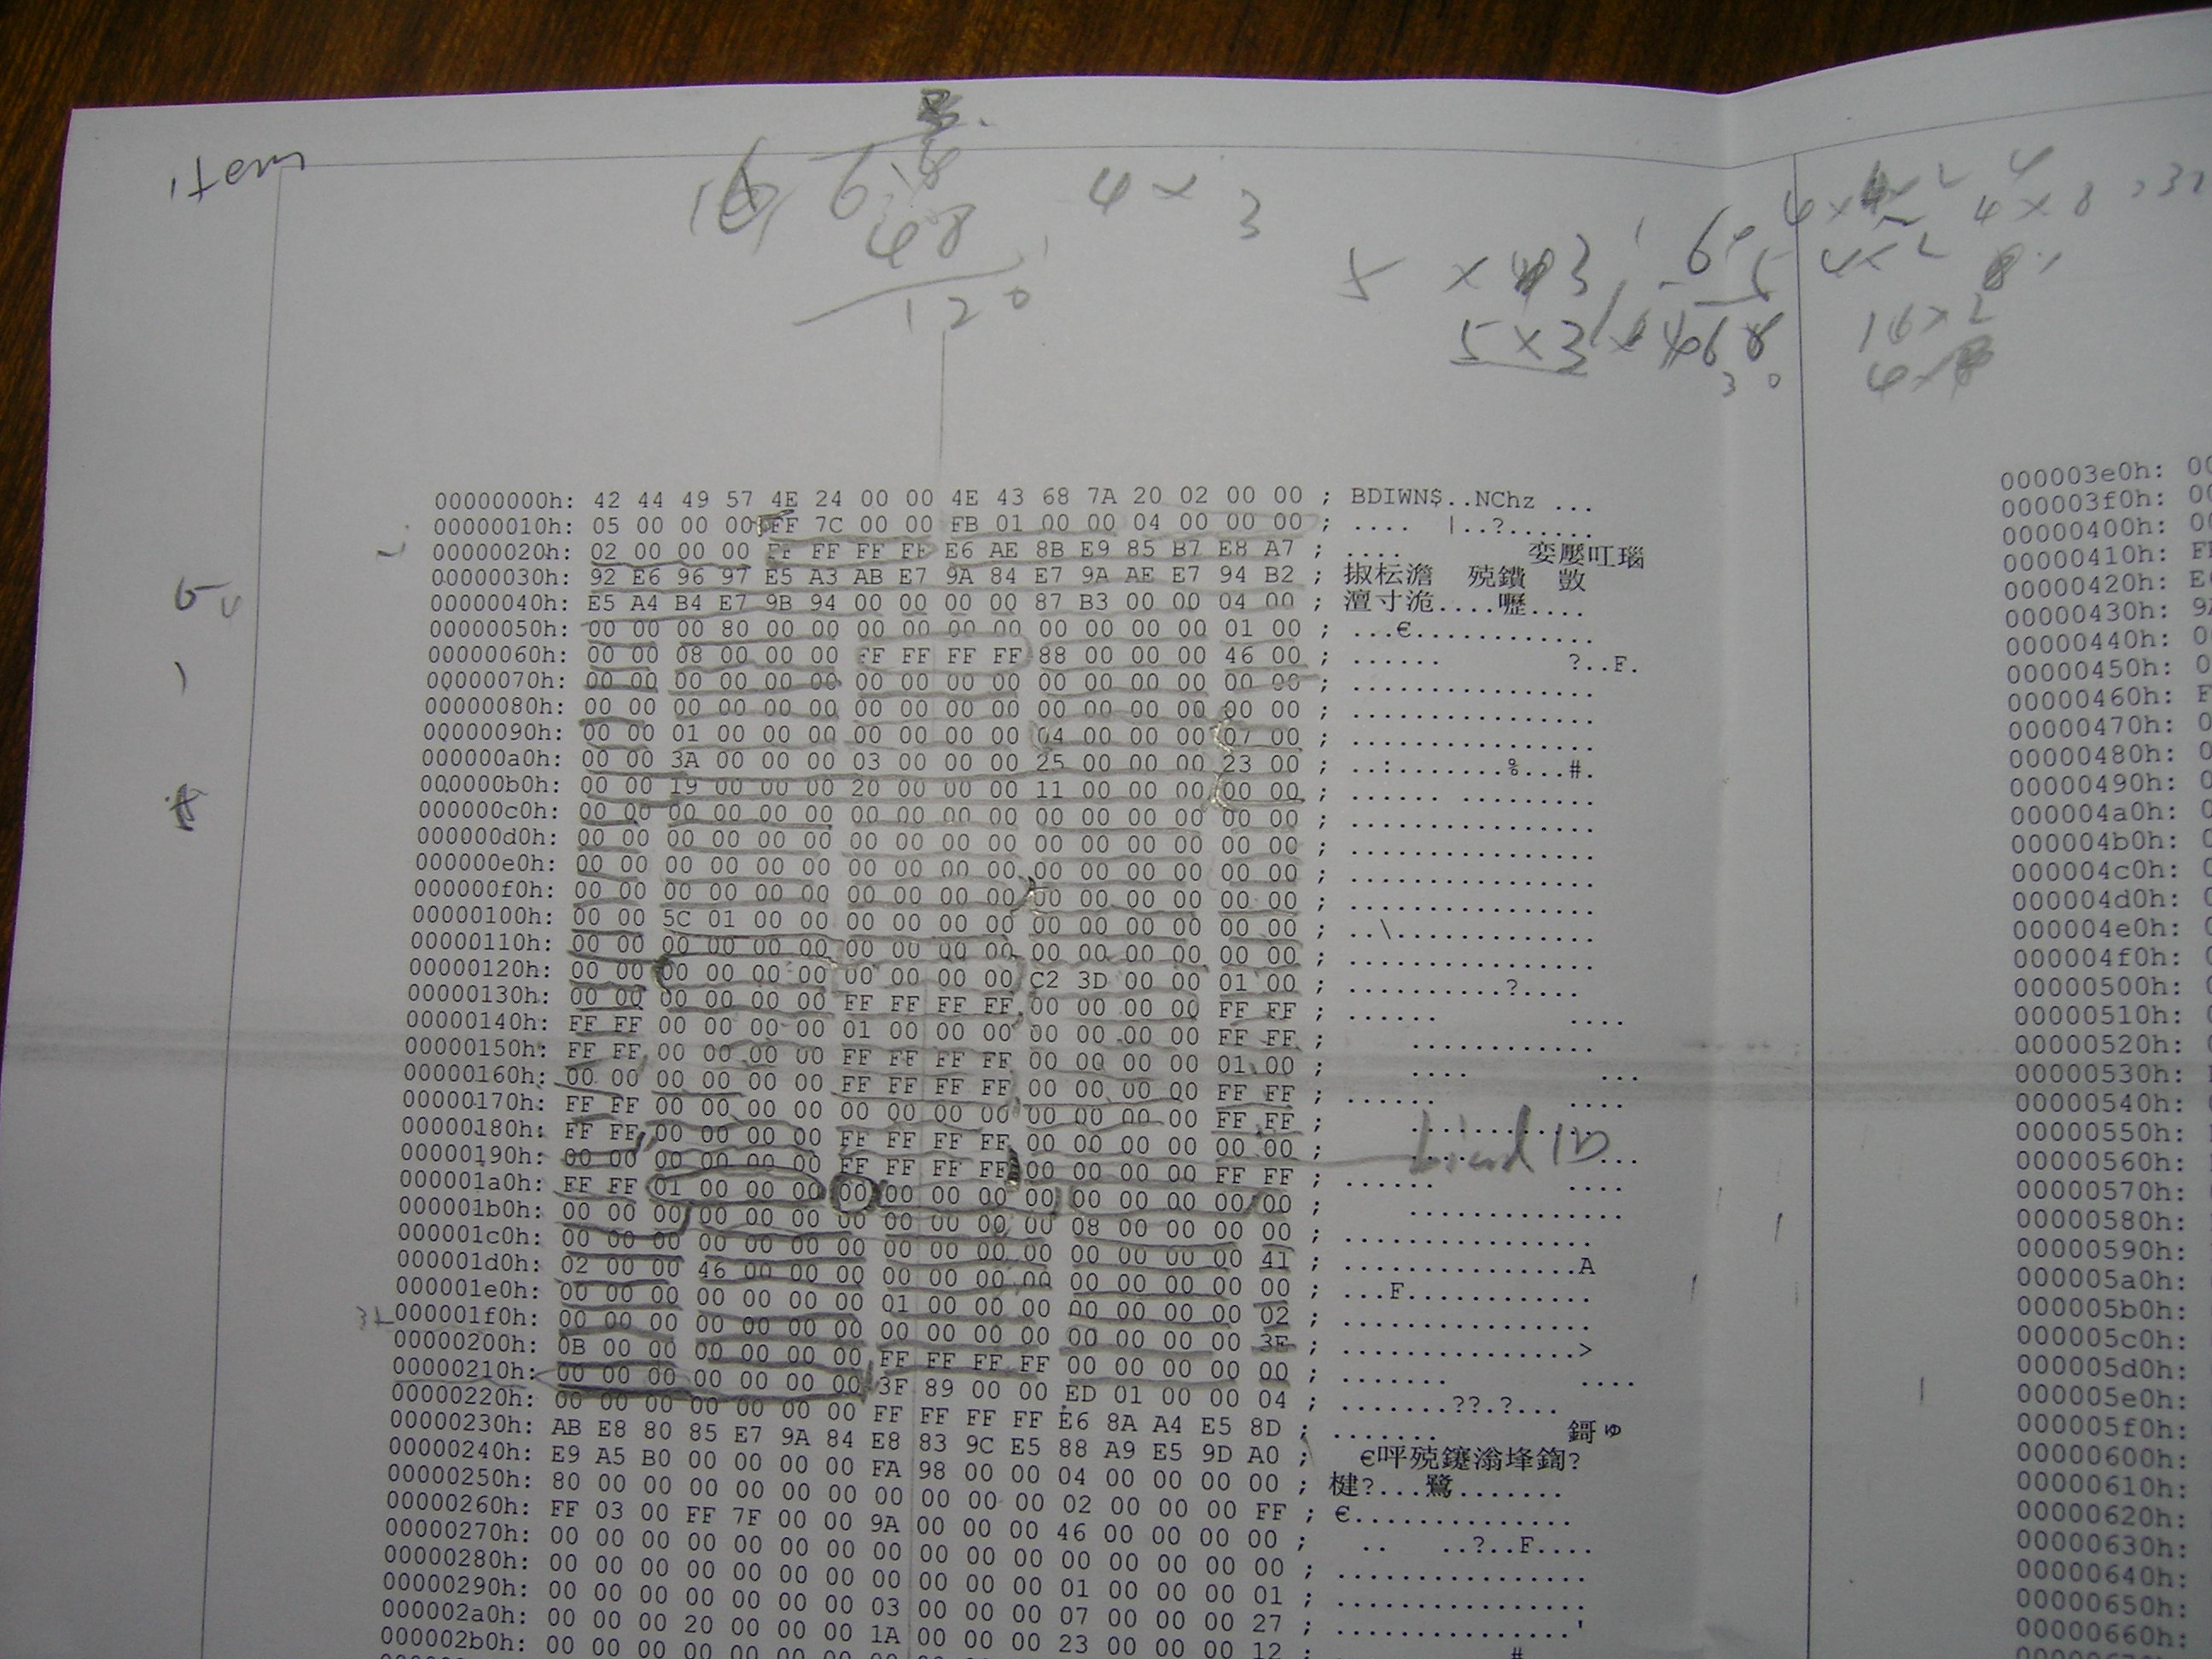 item
4 x 3
48
120
5 x 3
00000000h: 42 44 49 57 4E 24 00 00 4E 43 68 7A 20 02 00 00 ; BDIWN$..NChz ...
00000010h: 05 00 00 00 FF 7C 00 00 FB 01 00 00 04 00 00 00 ; .... |..?.......
00000020h: 02 00 00 00 FF FF FF FF E6 AE 8B E9 85 B7 E8 A7 ; ....
00000030h: 92 E6 96 97 E5 A3 AB E7 9A 84 E7 9A AE E7 94 B2 ;
00000040h: E5 A4 B4 E7 9B 94 00 00 00 00 87 B3 00 00 04 00 ;
00000050h: 00 00 00 80 00 00 00 00 00 00 00 00 00 00 01 00 ; ...€............
00000060h: 00 00 08 00 00 00 FF FF FF FF 88 00 00 00 46 00 ; ...... ?..F.
00000070h: 00 00 00 00 00 00 00 00 00 00 00 00 00 00 00 00 ; ................
00000080h: 00 00 00 00 00 00 00 00 00 00 00 00 00 00 00 00 ; ................
00000090h: 00 00 01 00 00 00 00 00 00 00 04 00 00 00 07 00 ; ................
000000a0h: 00 00 3A 00 00 00 03 00 00 00 25 00 00 00 23 00 ; ..:.......%...#.
000000b0h: 00 00 19 00 00 00 20 00 00 00 11 00 00 00 00 00 ; ...... .........
000000c0h: 00 00 00 00 00 00 00 00 00 00 00 00 00 00 00 00 ; ................
000000d0h: 00 00 00 00 00 00 00 00 00 00 00 00 00 00 00 00 ; ................
000000e0h: 00 00 00 00 00 00 00 00 00 00 00 00 00 00 00 00 ; ................
000000f0h: 00 00 00 00 00 00 00 00 00 00 00 00 00 00 00 00 ; ................
00000100h: 00 00 5C 01 00 00 00 00 00 00 00 00 00 00 00 00 ; ..\.............
00000110h: 00 00 00 00 00 00 00 00 00 00 00 00 00 00 00 00 ; ................
00000120h: 00 00 00 00 00 00 00 00 00 00 C2 3D 00 00 01 00 ; ..........?....
00000130h: 00 00 00 00 00 00 FF FF FF FF 00 00 00 00 FF FF ; ...... ....
00000140h: FF FF 00 00 00 00 01 00 00 00 00 00 00 00 FF FF ; ............
00000150h: FF FF 00 00 00 00 FF FF FF FF 00 00 00 00 01 00 ; .... ...
00000160h: 00 00 00 00 00 00 FF FF FF FF 00 00 00 00 FF FF ; ...... ....
00000170h: FF FF 00 00 00 00 00 00 00 00 00 00 00 00 FF FF ; ............
00000180h: FF FF 00 00 00 00 FF FF FF FF 00 00 00 00 00 00 ; .... ...
bind ID
00000190h: 00 00 00 00 00 00 FF FF FF FF 00 00 00 00 FF FF ; ...... ....
000001a0h: FF FF 01 00 00 00 00 00 00 00 00 00 00 00 00 00 ; ..............
000001b0h: 00 00 00 00 00 00 00 00 00 00 00 08 00 00 00 00 ; ................
000001c0h: 00 00 00 00 00 00 00 00 00 00 00 00 00 00 00 41 ; ...............A
000001d0h: 02 00 00 46 00 00 00 00 00 00 00 00 00 00 00 00 ; ...F............
000001e0h: 00 00 00 00 00 00 00 01 00 00 00 00 00 00 00 02 ; ................
000001f0h: 00 00 00 00 00 00 00 00 00 00 00 00 00 00 00 3E ; ...............>
00000200h: 0B 00 00 00 00 00 00 FF FF FF FF 00 00 00 00 00 ; ....... ....
00000210h: 00 00 00 00 00 00 00 3F 89 00 00 ED 01 00 00 04 ; .......??.?...
00000220h: 00 00 00 00 00 00 00 FF FF FF FF E6 8A A4 E5 8D ; .......
00000230h: AB E8 80 85 E7 9A 84 E8 83 9C E5 88 A9 E5 9D A0 ;
00000240h: E9 A5 B0 00 00 00 00 FA 98 00 00 04 00 00 00 00 ;
00000250h: 80 00 00 00 00 00 00 00 00 00 00 02 00 00 00 FF ; €...............
00000260h: FF 03 00 FF 7F 00 00 9A 00 00 00 46 00 00 00 00 ; .. ..?..F....
00000270h: 00 00 00 00 00 00 00 00 00 00 00 00 00 00 00 00 ; ................
00000280h: 00 00 00 00 00 00 00 00 00 00 00 01 00 00 00 01 ; ................
00000290h: 00 00 00 00 00 00 00 03 00 00 00 07 00 00 00 27 ; ...............'
000002a0h: 00 00 00 20 00 00 00 1A 00 00 00 23 00 00 00 12
000002b0h:
000003e0h:
000003f0h:
00000400h:
00000410h:
00000420h:
00000430h:
00000440h:
00000450h:
00000460h:
00000470h:
00000480h:
00000490h:
000004a0h:
000004b0h:
000004c0h:
000004d0h:
000004e0h:
000004f0h:
00000500h:
00000510h:
00000520h:
00000530h:
00000540h:
00000550h:
00000560h:
00000570h:
00000580h:
00000590h:
000005a0h:
000005b0h:
000005c0h:
000005d0h:
000005e0h:
000005f0h:
00000600h:
00000610h:
00000620h:
00000630h:
00000640h:
00000650h:
00000660h: